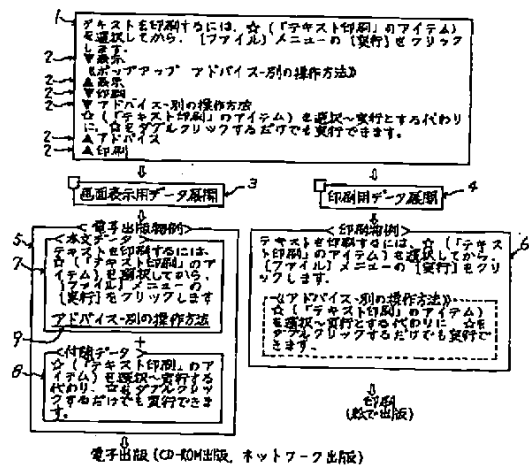 1
テキストを印刷するには、☆(「テキスト印刷」のアイテム)
を選択してから、[ファイル]メニューの[実行]をクリック
します。
2 ▼表示
《ポップアップ アドバイス-別の操作方法》
2 ▲表示
2 ▼印刷
2 ▼アドバイス-別の操作方法
☆(「テキスト印刷」のアイテム)を選択〜実行とする代わり
に、☆をダブルクリックするだけでも実行できます。
2 ▲アドバイス
2 ▲印刷
画面表示用データ展開 3
印刷用データ展開 4
5
<電子出版物例>
7
<本文データ>
テキストを印刷するには、
☆(「テキスト印刷」のア
イテム)を選択してから、
[ファイル]メニューの
[実行]をクリックします
アドバイス-別の操作方法
9
+
8
<付随データ>
☆(「テキスト印刷」のア
イテム)を選択〜実行する
代わり、☆をダブルクリッ
クするだけでも実行できま
す。
電子出版(CD-ROM出版、ネットワーク出版)
<印刷物例>
6
テキストを印刷するには、☆(「テキス
ト印刷」のアイテム)を選択してから、
[ファイル]メニューの[実行]をクリ
ックします。
《アドバイス-別の操作方法》
☆(「テキスト印刷」のアイテム)
を選択〜実行とする代わりに ☆を
ダブルクリックするだけでも実行で
きます。
印刷
(紙で出版)